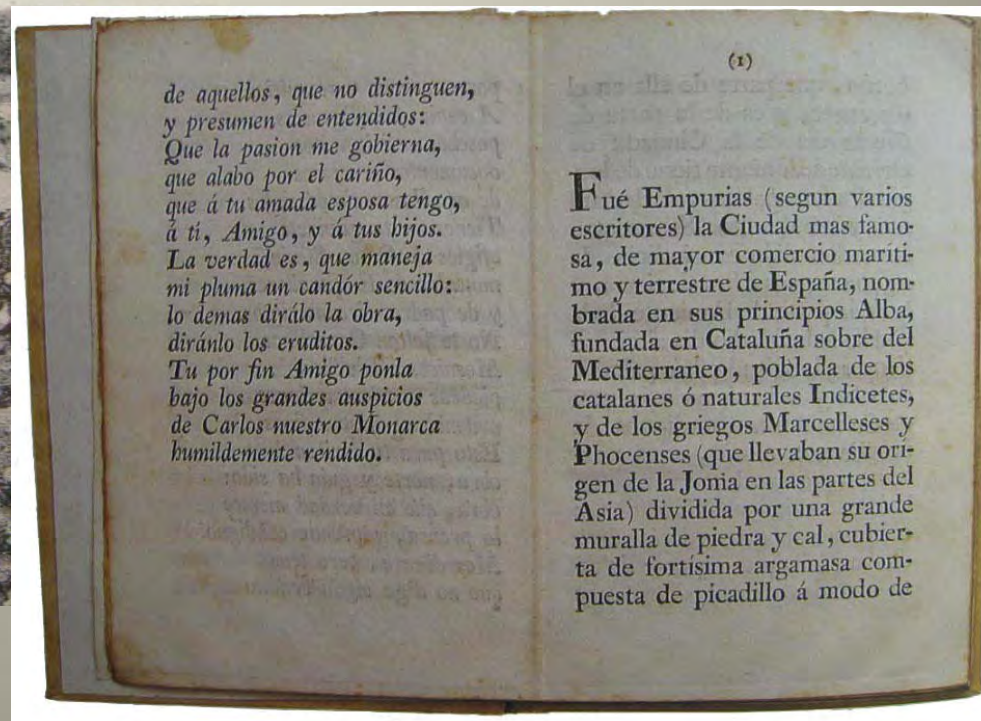 de aquellos, que no distinguen,
y presumen de entendidos:
Que la pasion me gobierna,
que alabo por el cariño,
que á tu amada esposa tengo,
á tí, Amigo, y á tus hijos.
La verdad es, que maneja
mi pluma un candór sencillo:
lo demas dirálo la obra,
diránlo los eruditos.
Tu por fin Amigo ponla
bajo los grandes auspicios
de Carlos nuestro Monarca
humildemente rendido.
(1)
Fué Empurias (segun varios
escritores) la Ciudad mas famo-
sa, de mayor comercio maríti-
mo y terrestre de España, nom-
brada en sus principios Alba,
fundada en Cataluña sobre del
Mediterraneo, poblada de los
catalanes ó naturales Indicetes,
y de los griegos Marcelleses y
Phocenses (que llevaban su orí-
gen de la Jonia en las partes del
Asia) dividida por una grande
muralla de piedra y cal, cubier-
ta de fortísima argamasa com-
puesta de picadillo á modo de